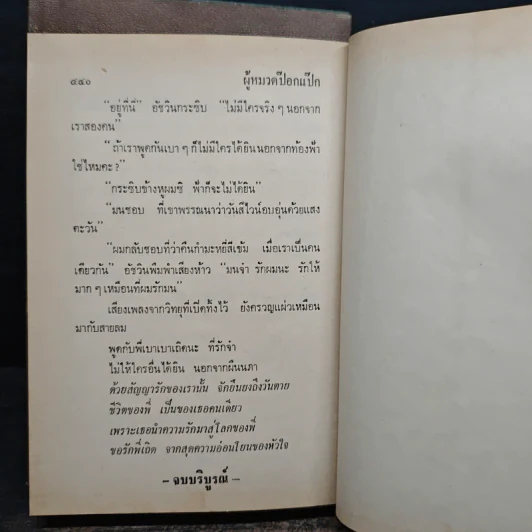 ๔๕๐ ผู้หมวดป๊อกแป๊ก
"อยู่ที่นี่" อัชวินกระซิบ "ไม่มีใครจริง ๆ นอกจาก
เราสองคน"
"ถ้าเราพูดกันเบา ๆ ก็ไม่มีใครได้ยินนอกจากท้องฟ้า
ใช่ไหมคะ?"
"กระซิบข้างหูผมซิ ฟ้าก็จะไม่ได้ยิน"
"มนชอบ ที่เขาพรรณนาว่าวันสีไวน์อบอุ่นด้วยแสง
ตะวัน"
"ผมกลับชอบที่ว่าคืนกำมะหยี่สีเข้ม เมื่อเราเป็นคน
เดียวกัน" อัชวินพึมพำเสียงห้าว "มนจ๋า รักผมนะ รักให้
มาก ๆ เหมือนที่ผมรักมน"
เสียงเพลงจากวิทยุที่เปิดทิ้งไว้ ยังครวญแผ่วเหมือน
มากับสายลม
พูดกับพี่เบาเบาเถิดนะ ที่รักจ๋า
ไม่ให้ใครอื่นได้ยิน นอกจากผืนนภา
ด้วยสัญญารักของเรานั้น จักยืนยงถึงวันตาย
ชีวิตของพี่ เป็นของเธอคนเดียว
เพราะเธอนำความรักมาสู่โลกของพี่
ขอรักพี่เถิด จากสุดความอ่อนโยนของหัวใจ
– จบบริบูรณ์ –